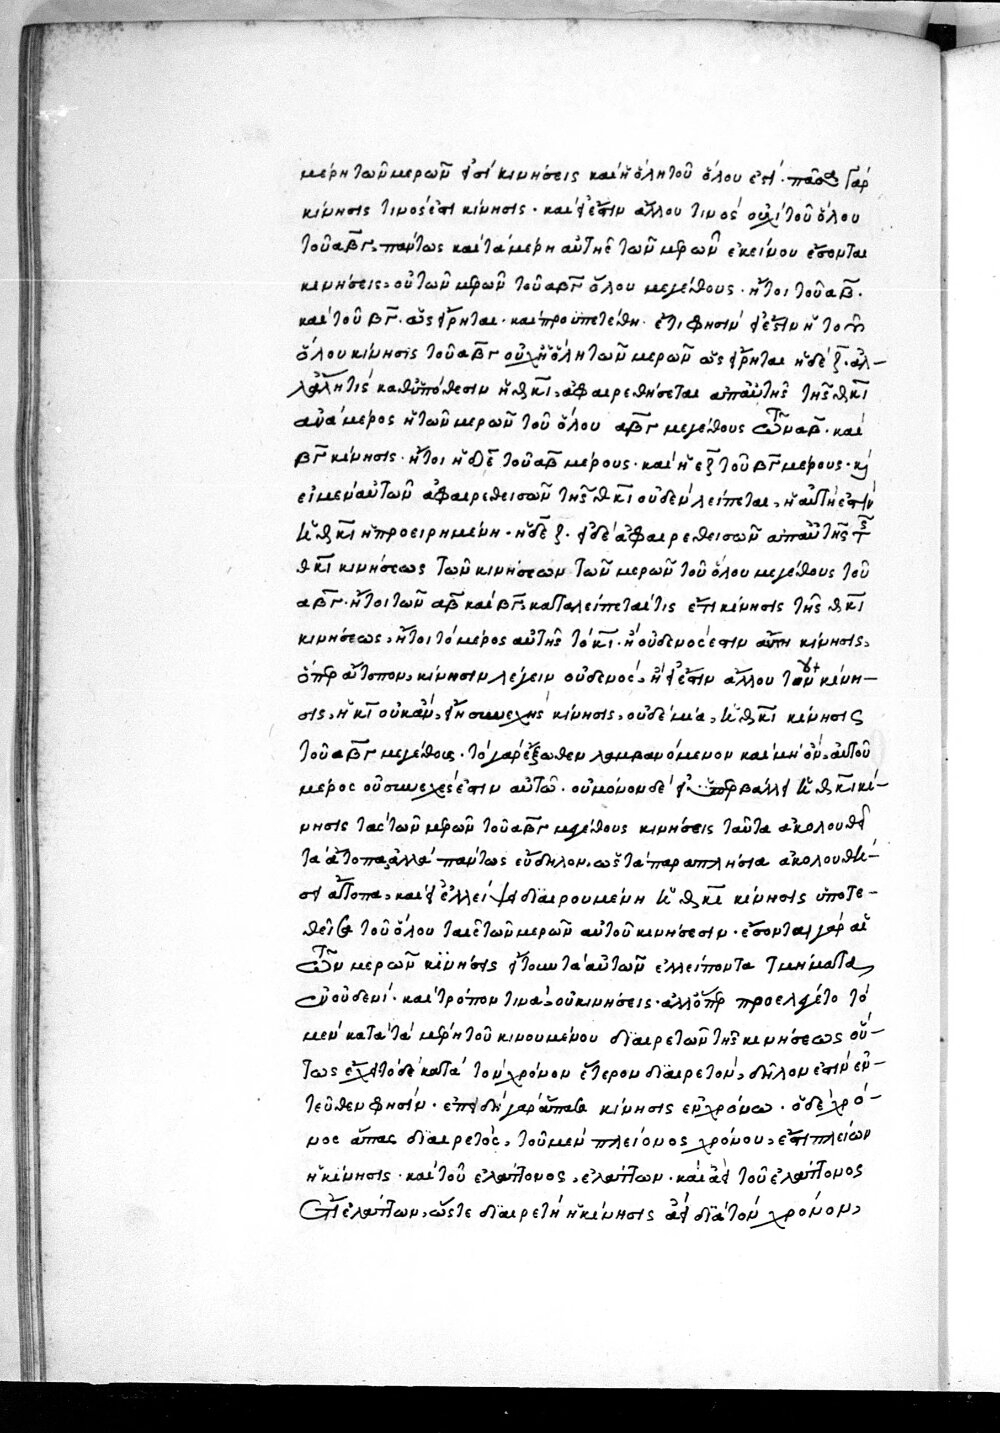 μέρη τῶν μερῶν εἰσὶ κινήσεις καὶ ἡ ὅλη τοῦ ὅλου ἐστί· πᾶσα γὰρ
κίνησις τινός ἐστι κίνησις· καὶ εἰ ἔστιν ἄλλου τινὸς οὐχὶ τοῦ ὅλου
τοῦ αβγ, πάντως καὶ τὰ μέρη αὐτῆς τῶν μερῶν ἐκείνου ἔσονται
κινήσεις, οὐ τῶν μερῶν τοῦ αβγ ὅλου μεγέθους· ἤτοι τοῦ αβ·
καὶ τοῦ βγ· ὡς εἴρηται· καὶ προϋπετέθη· ἔτι φησὶν εἰ ἔστιν ἡ τοῦ
ὅλου κίνησις τοῦ αβγ οὐχὶ ἡ ὅλη τῶν μερῶν ὡς εἴρηται ἡ δεζ· ἀλ-
λ' ἄλλη τις καθ' ὑπόθεσιν ἡ θκι, ἀφαιρεθήσεται ἀπ' αὐτῆς τῆς θκι
ἀνὰ μέρος ἡ τῶν μερῶν τοῦ ὅλου αβγ μεγέθους τῶν αβ· καὶ
βγ κίνησις· ἤτοι ἡ δε τοῦ αβ μέρους· καὶ ἡ εζ τοῦ βγ μέρους· καὶ
εἰ μὲν αὐτῶν ἀφαιρεθεισῶν τῆς θκι οὐδὲν λείπεται, ἡ αὐτή ἐστιν
ἡ θκι ἡ προειρημένη· ἡ δεζ· εἰ δὲ ἀφαιρεθεισῶν ἀπ' αὐτῆς τῆς
θκι κινήσεως τῶν κινήσεων τῶν μερῶν τοῦ ὅλου μεγέθους τοῦ
αβγ· ἤτοι τῶν αβ καὶ βγ, καταλείπεταί τις ἔτι κίνησις τῆς θκι
κινήσεως, ἤτοι τὸ μέρος αὐτῆς τὸ κι· ἢ οὐδενός ἐστιν αὕτη κίνησις,
ὅπερ ἄτοπον, κίνησιν λέγειν οὐδενός, ἢ εἰ ἔστιν ἄλλου του κίνη-
σις, ἡ κι οὐκ ἂν εἴη συνεχὴς κίνησις, οὐδὲ μία, ἡ θκι κίνησις
τοῦ αβγ μεγέθους· τὸ γὰρ ἔξωθεν λαμβανόμενον καὶ μὴ ὂν, αὐτοῦ
μέρος οὐ συνεχές ἐστιν αὐτῶ· οὐ μόνον δὲ εἰ ὑπερβάλλει ἡ θκι κί-
νησις τὰς τῶν μερῶν τοῦ αβγ μεγέθους κινήσεις ταῦτα ἀκολουθεῖ
τὰ ἄτοπα, ἀλλὰ πάντως εὔδηλον, ὡς τὰ παραπλήσια ἀκολουθή-
σει ἄτοπα, καὶ εἰ ἐλλείψει διαιρουμένη ἡ θκι κίνησις ὑποτε-
θεῖσα τοῦ ὅλου ταῖς τῶν μερῶν αὐτοῦ κινήσεσιν· ἔσονται γὰρ αἱ
τῶν μερῶν κινήσεις ἤτοι κατὰ αὐτῶν ἐλλείποντα τμήματα
ἐν οὐδενί· καὶ τρόπον τινὰ, οὐ κινήσεις· ἀλλ' ὅπερ προελέγετο τὸ
μὲν κατὰ τὰ μέρη τοῦ κινουμένου διαιρετῶν τῆς κινήσεως οὕ-
τως ἔχει τὸ δὲ κατὰ τὸν χρόνον ἕτερον διαιρετὸν, δῆλόν ἐστιν ἐν-
τεῦθεν φησίν· ἐπειδὴ γὰρ ἅπασα κίνησις ἐν χρόνω· ὁ δὲ χρό-
νος ἅπας διαιρετὸς, τοῦ μὲν πλείονος χρόνου, ἔτι πλείων
ἡ κίνησις· καὶ τοῦ ἐλάττονος, ἐλάττων· καὶ ἀεὶ τοῦ ἐλάττονος
ἔτι ἐλάττων, ὥστε διαιρετὴ ἡ κίνησις ἀεὶ διὰ τὸν χρόνον,